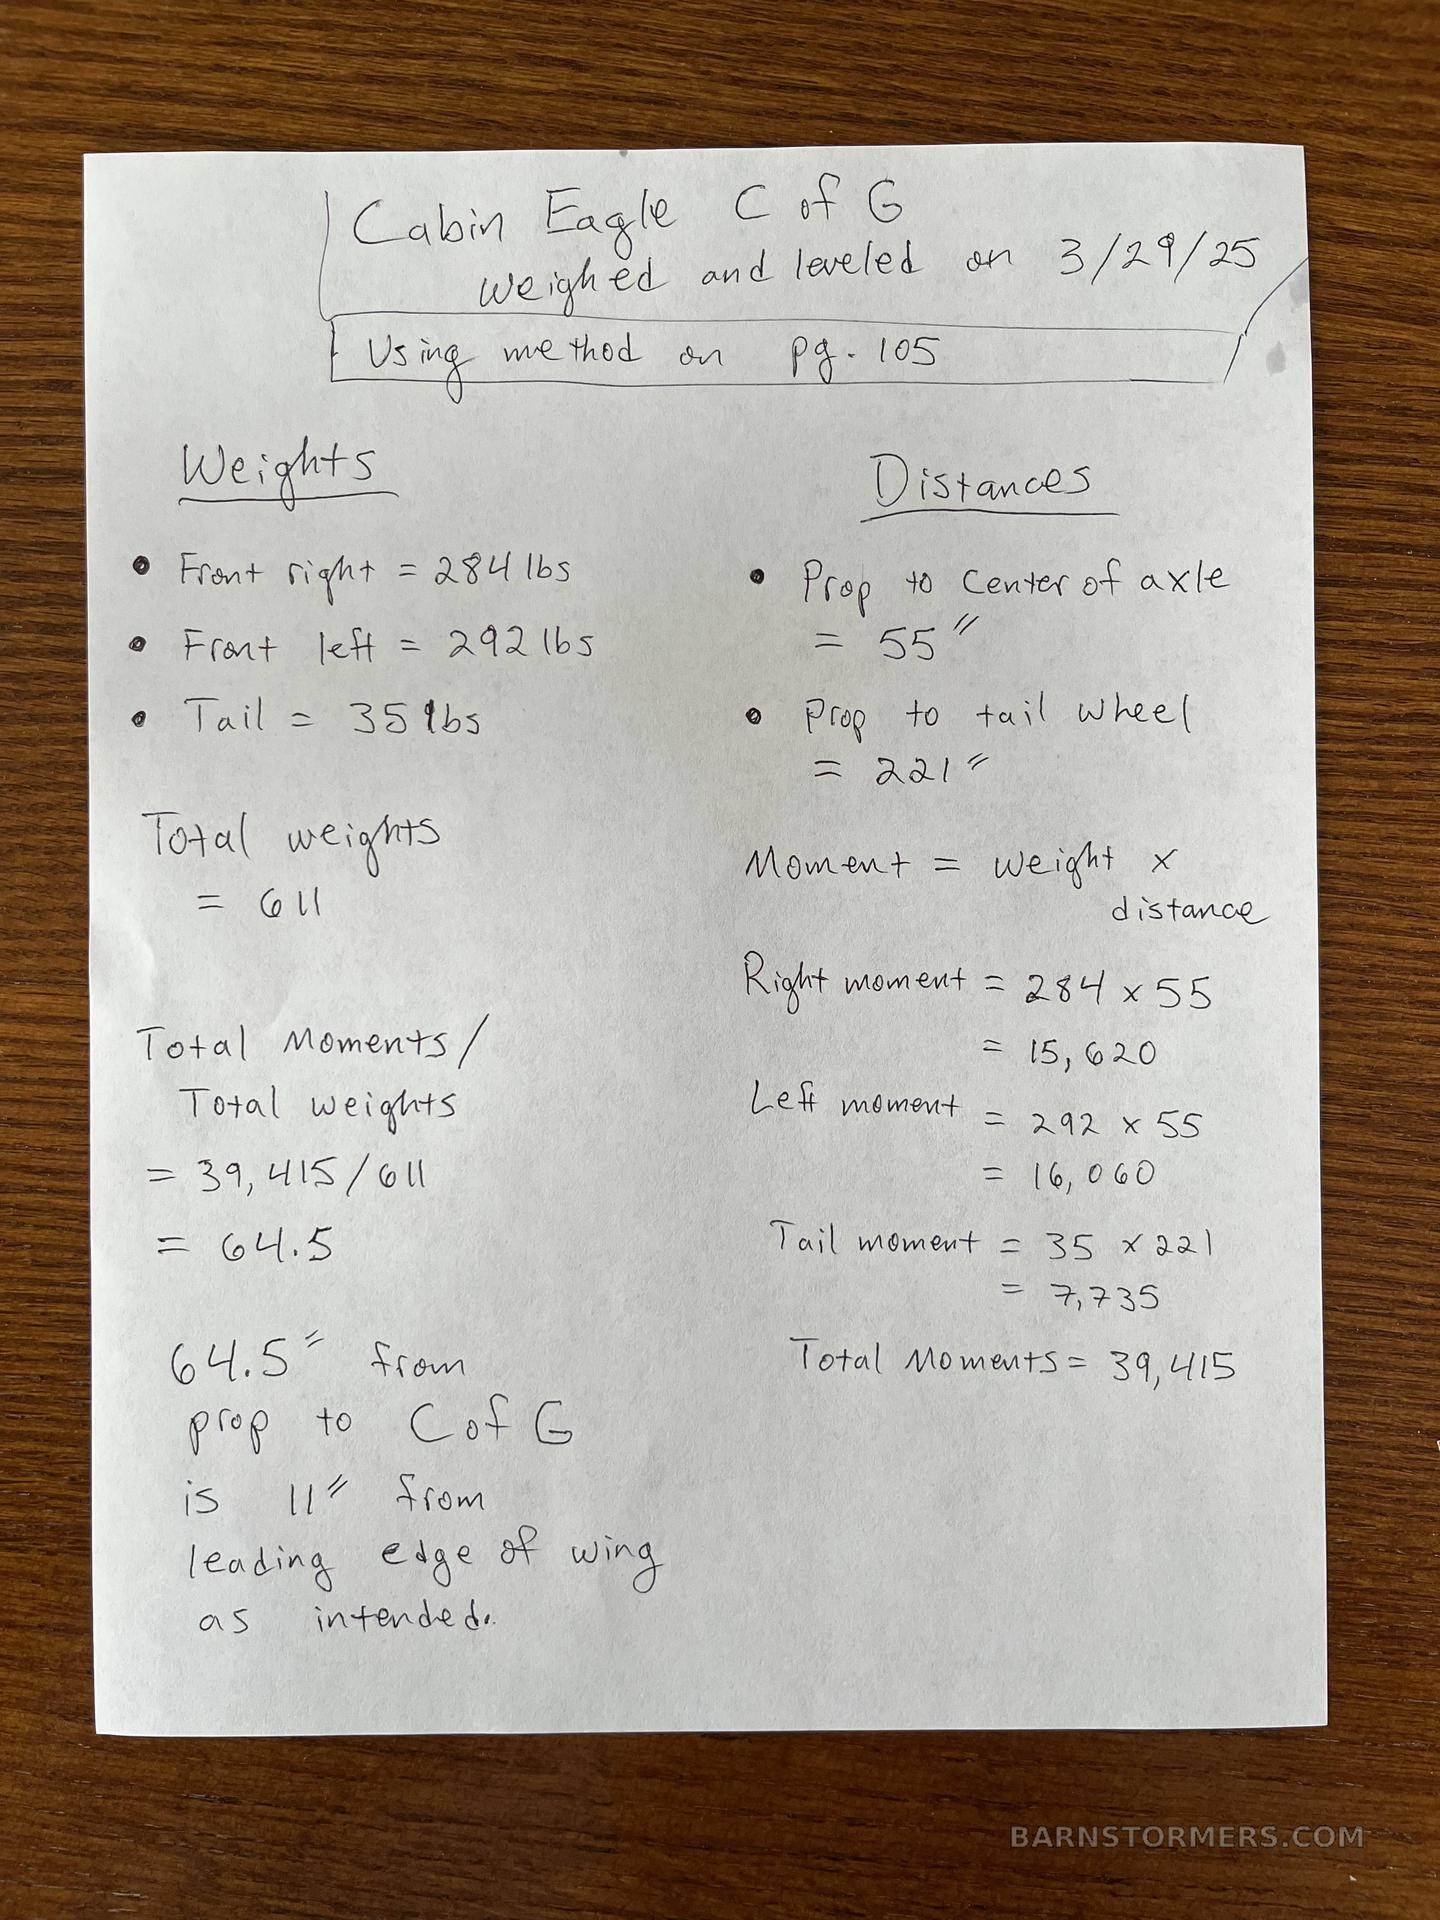 Cabin Eagle C of G
weighed and leveled on 3/29/25
Using method on pg. 105
Weights
• Front right = 284 lbs
• Front left = 292 lbs
• Tail = 35 lbs
Total weights
= 611
Total Moments/
Total weights
= 39,415/611
= 64.5
64.5" from
prop to C of G
is 11" from
leading edge of wing
as intended.
Distances
• Prop to center of axle
= 55"
• Prop to tail wheel
= 221"
Moment = weight x
distance
Right moment = 284 x 55
= 15,620
Left moment = 292 x 55
= 16,060
Tail moment = 35 x 221
= 7,735
Total Moments = 39,415
BARNSTORMERS.COM